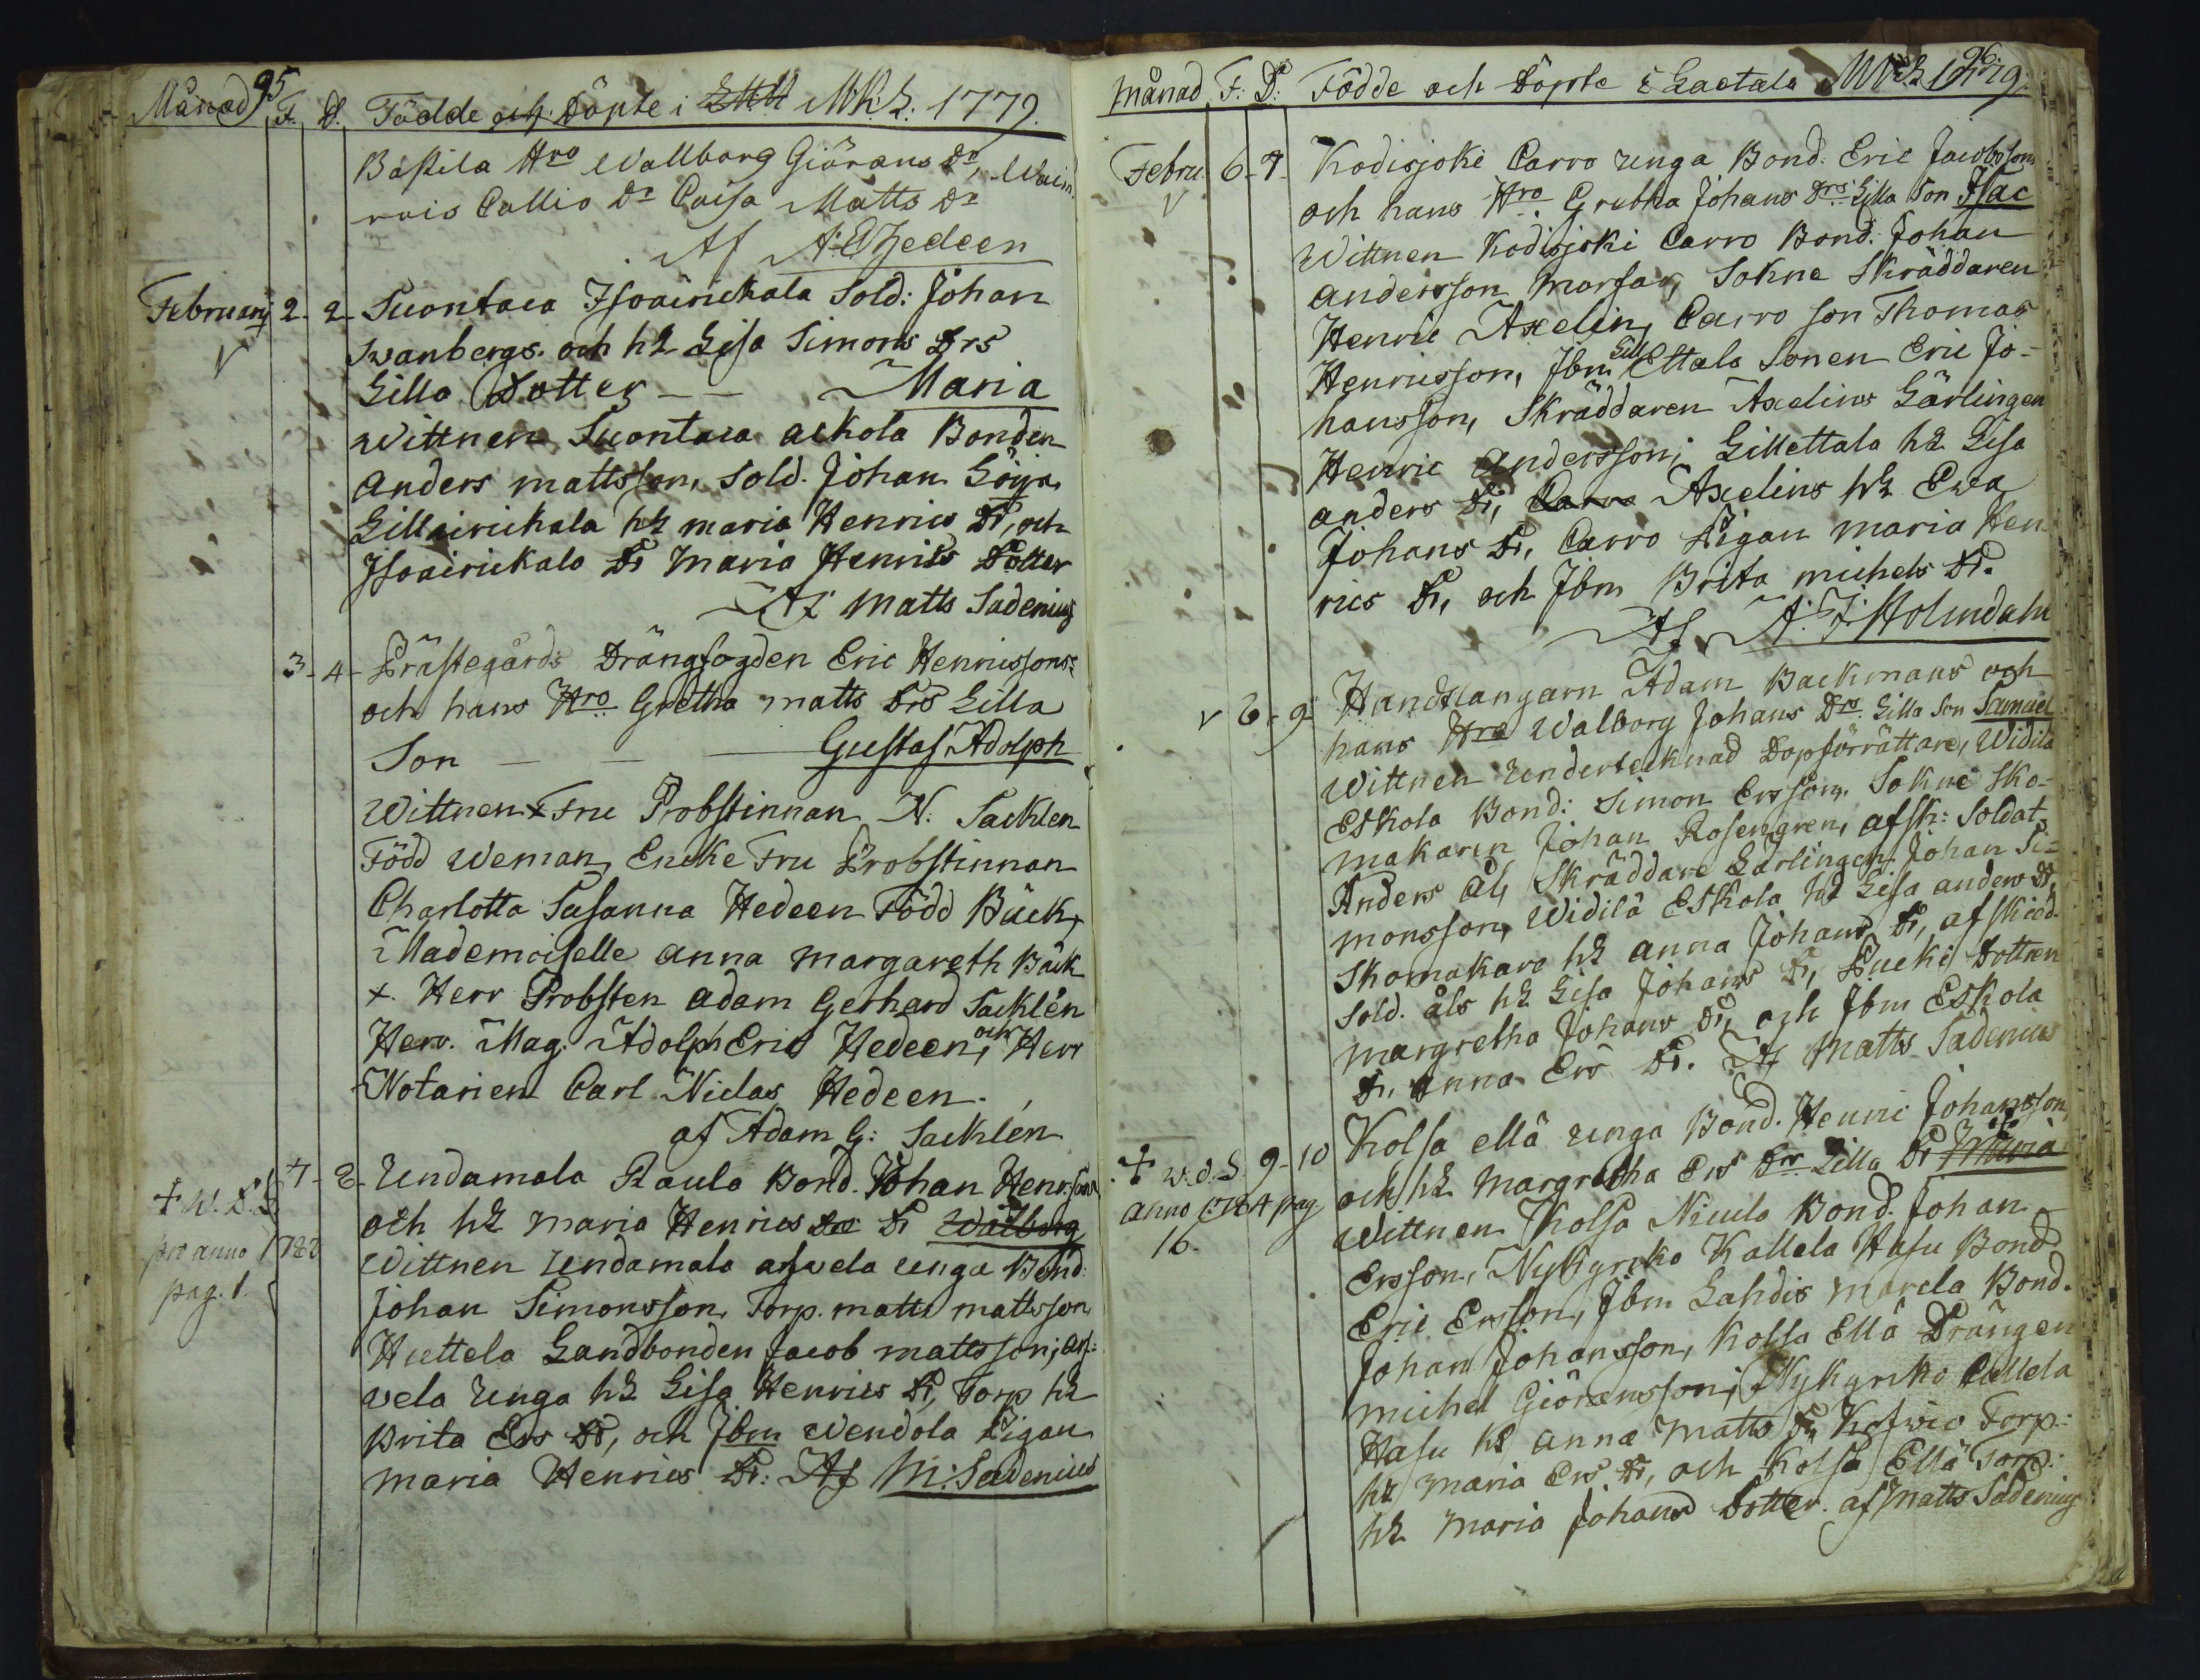 Månad 95 F. D. Födde och Döpte i M.K.L. 1779.
Bastila Hro Wallborg Giörans Dr, Wain
rais Callio Dr Caisa Matts Dr
Af A: E Hedeen
February 2 - 2 - Suontaca Isoairickala Sold: Johan
Swanbergs. och hℓ Lisa Simons Drs
Lilla Dotter - - Maria
Wittnen Suontaca ackola Bonden
Anders mattsson, Sold. Johan Löija,
Lillairickala hℓ maria Henrics Dr, och
Isoairickala Dr Maria Henrics Dotter
Af Matts Sadenius
3 - 4 - Prästegårds Drängfogden Eric Henricssons
och hans Hro Gretha matts Drs Lilla
Son - - Gustaf Adolph
Wittnen + Fru Probstinnan N. Sacklen
Född Weman, Encke Fru Probstinnan
Charlotta Susanna Hedeen Född Bäck,
Mademoiselle anna margareth Bäck
+. Herr Probsten adam Gerhard Sacklén
Herr. Mag. Adolph Eric Hedeen, och Herr
Notarien Carl Niclas Hedeen.
af Adam G: Sacklén
+ W. D. S. 7 - 8 - Undamala Paulo Bond. Johan Henrsson
och hℓ maria Henrics Drs Dr Walborg
pro anno 1782 Wittnen Undamala arfwela unga Bond:
pag. 1. Johan Simonsson, Torp. matts mattsson,
Huttela Landbonden Jacob mattsson; arf:
wela Unga hℓ Lisa Henrics Dr, Torp hℓ
Brita Ers Dr, och Ibm Wendola Pigan
maria Henrics Dr: Af M: Sadenius
Månad F: D: Födde och Döpte i Laetala M.K. 1779. 96
Febru. 6 - 7 - Kodisjoki Carro unga Bond. Eric Jacobsons
och hans Hro Gretha Johans Drs Lilla Son Isac
Wittnen Kodisjoki Carro Bond. Johan
andersson morfar, Sokne Skräddaren
Henric Axelin, Carro son Thomas
Henricsson, Ibm Lill Ettala Sonen Eric Jo-
hansson, Skräddaren Axelins Lärlingen
Henric andersson; Lillettala hℓ Lisa
anders Dr, Carro Axelins hℓ Ewa
Johans Dr, Carro Pigan maria Hen
rics Dr, och Ibm Brita michels Dr.
Af A: J: Holmdahl
6 - 9 Handtlangarn Adam Backmans och
hans Hro Walborg Johans Drs Lilla Son Samuel
Wittnen Undertecknad Dopförrättare, Widilä
Eskola Bond: Simon Ersson, Sokne Sko-
makaren Johan Rosengren, afsk: Soldat
Anders Ål, Skräddare Lärlingen Johan Si=
monsson, Widilä Eskola hℓ Lisa anders Dr,
Skomakare hℓ anna Johans Dr, afskied.
Sold. Åls hℓ Lisa Johans Dr, Dottren
margretha Johans Dr, och Ibm Eskola
Dr, anna Ers Dr. Af Matts Sadenius
+ W. D. S. 9 - 10 Kolsa ellä unga Bond. Henric Johansson,
anno 1784 pag och hℓ Margretha Ers Drs Lilla Dr Maria
16. Wittnen Kolsa Nicula Bond. Johan
Ersson, Nykyrcko Kallela Hasu Bond
Eric Ersson, Ibm Lahdis Marcla Bond.
Johan Johansson, Kolsa Ellä Drängen
michel Giöransson; Nykyrko Callela
Hasu hℓ anna Matts Dr, Torp:
hℓ maria Ers Dr, och Kolsa Ellä Torp:
hℓ Maria Johans Dotter. af Matts Sadenius